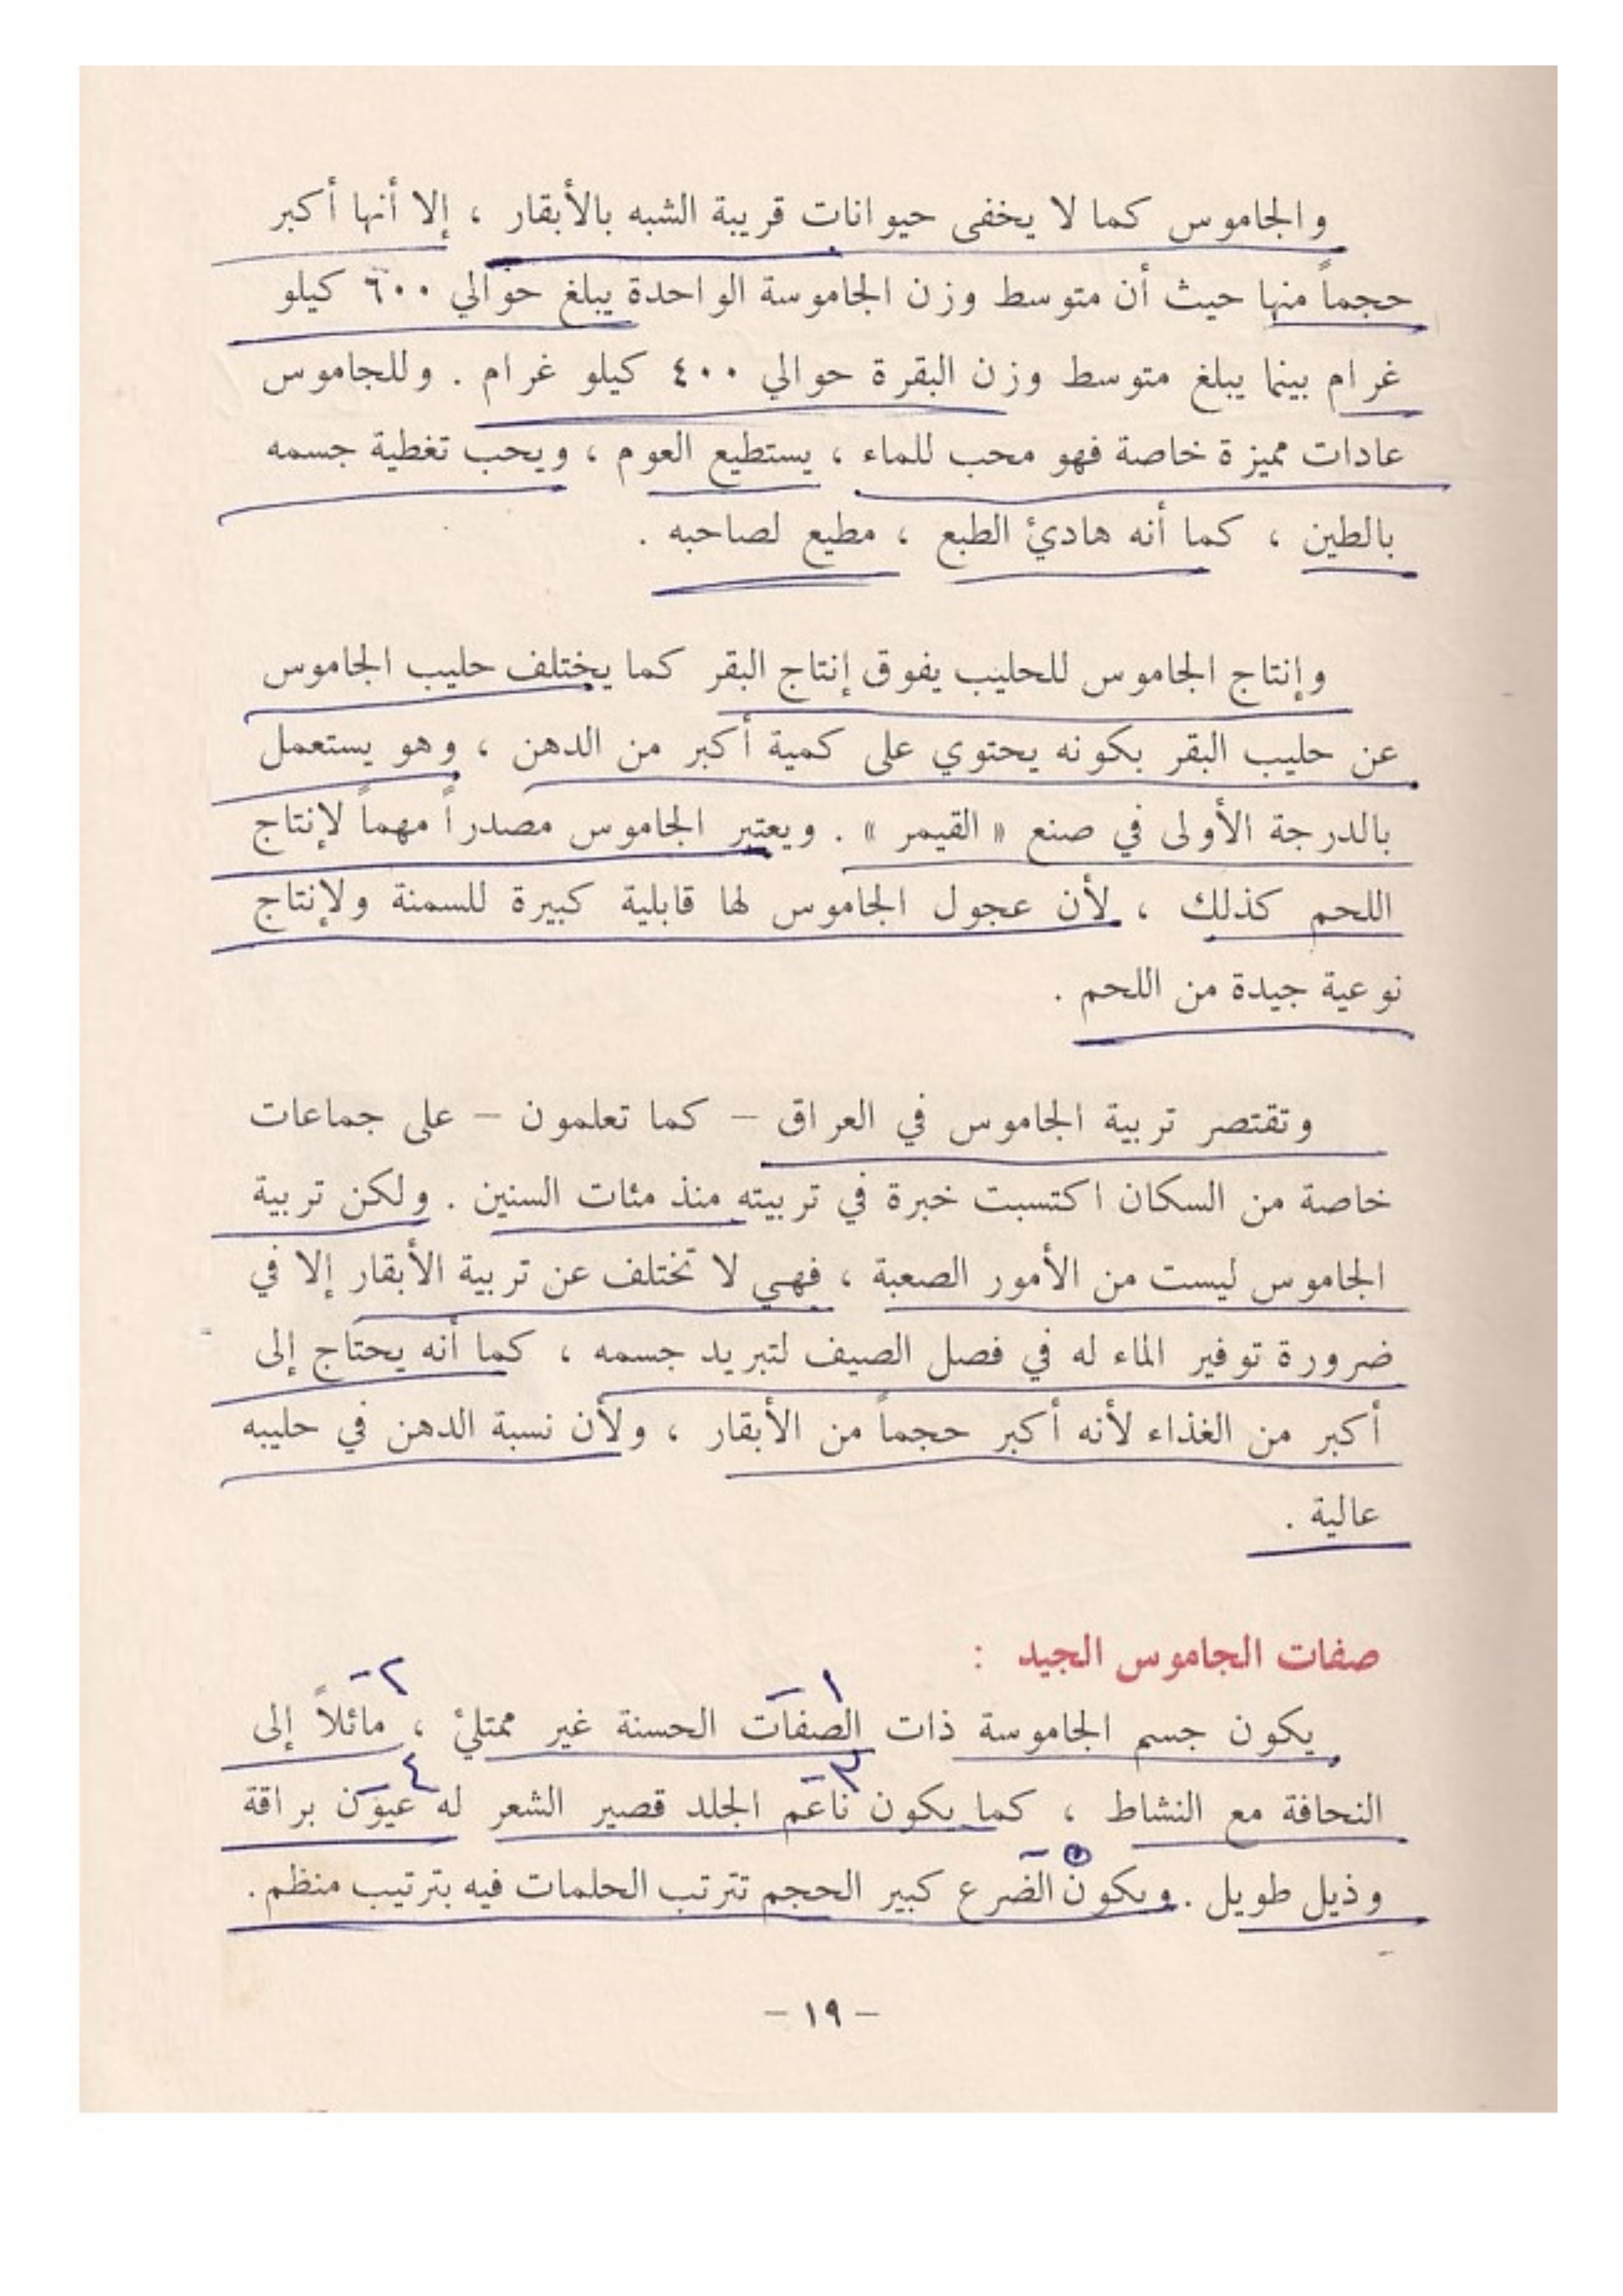 والجاموس كما لا يخفى حيوانات قريبة الشبه بالأبقار ، إلا أنها أكبر
حجماً منها حيث أن متوسط وزن الجاموسة الواحدة يبلغ حوالي ٦٠٠ كيلو
غرام بينما يبلغ متوسط وزن البقرة حوالي ٤٠٠ كيلو غرام . وللجاموس
عادات مميزة خاصة فهو محب للماء ، يستطيع العوم ، ويحب تغطية جسمه
بالطين ، كما أنه هادئ الطبع ، مطيع لصاحبه .
وإنتاج الجاموس للحليب يفوق إنتاج البقر كما يختلف حليب الجاموس
عن حليب البقر بكونه يحتوي على كمية أكبر من الدهن ، وهو يستعمل
بالدرجة الأولى في صنع « القيمر » . ويعتبر الجاموس مصدراً مهماً لإنتاج
اللحم كذلك ، لأن عجول الجاموس لها قابلية كبيرة للسمنة ولإنتاج
نوعية جيدة من اللحم .
وتقتصر تربية الجاموس في العراق – كما تعلمون – على جماعات
خاصة من السكان اكتسبت خبرة في تربيته منذ مئات السنين . ولكن تربية
الجاموس ليست من الأمور الصعبة ، فهي لا تختلف عن تربية الأبقار إلا في
ضرورة توفير الماء له في فصل الصيف لتبريد جسمه ، كما أنه يحتاج إلى
أكبر من الغذاء لأنه أكبر حجماً من الأبقار ، ولأن نسبة الدهن في حليبه
عالية .
صفات الجاموس الجيد :
١ – ٢ –
يكون جسم الجاموسة ذات الصفات الحسنة غير ممتلئ ، مائلاً إلى
٣ – ٤ –
النحافة مع النشاط ، كما يكون ناعم الجلد قصير الشعر له عيون براقة
٥ –
وذيل طويل . ويكون الضرع كبير الحجم تترتب الحلمات فيه بترتيب منظم .
– ١٩ –